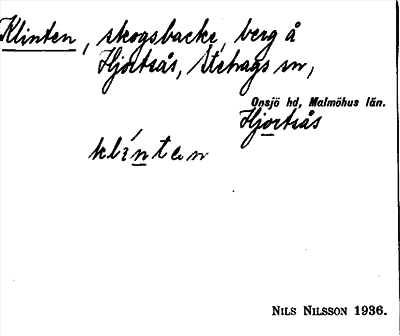 Klinten, skogsbacke, berg å
Hjortsås, Stehags sn,
Onsjö hd, Malmöhus län.
Hjortsås
klíntan
NILS NILSSON 1936.